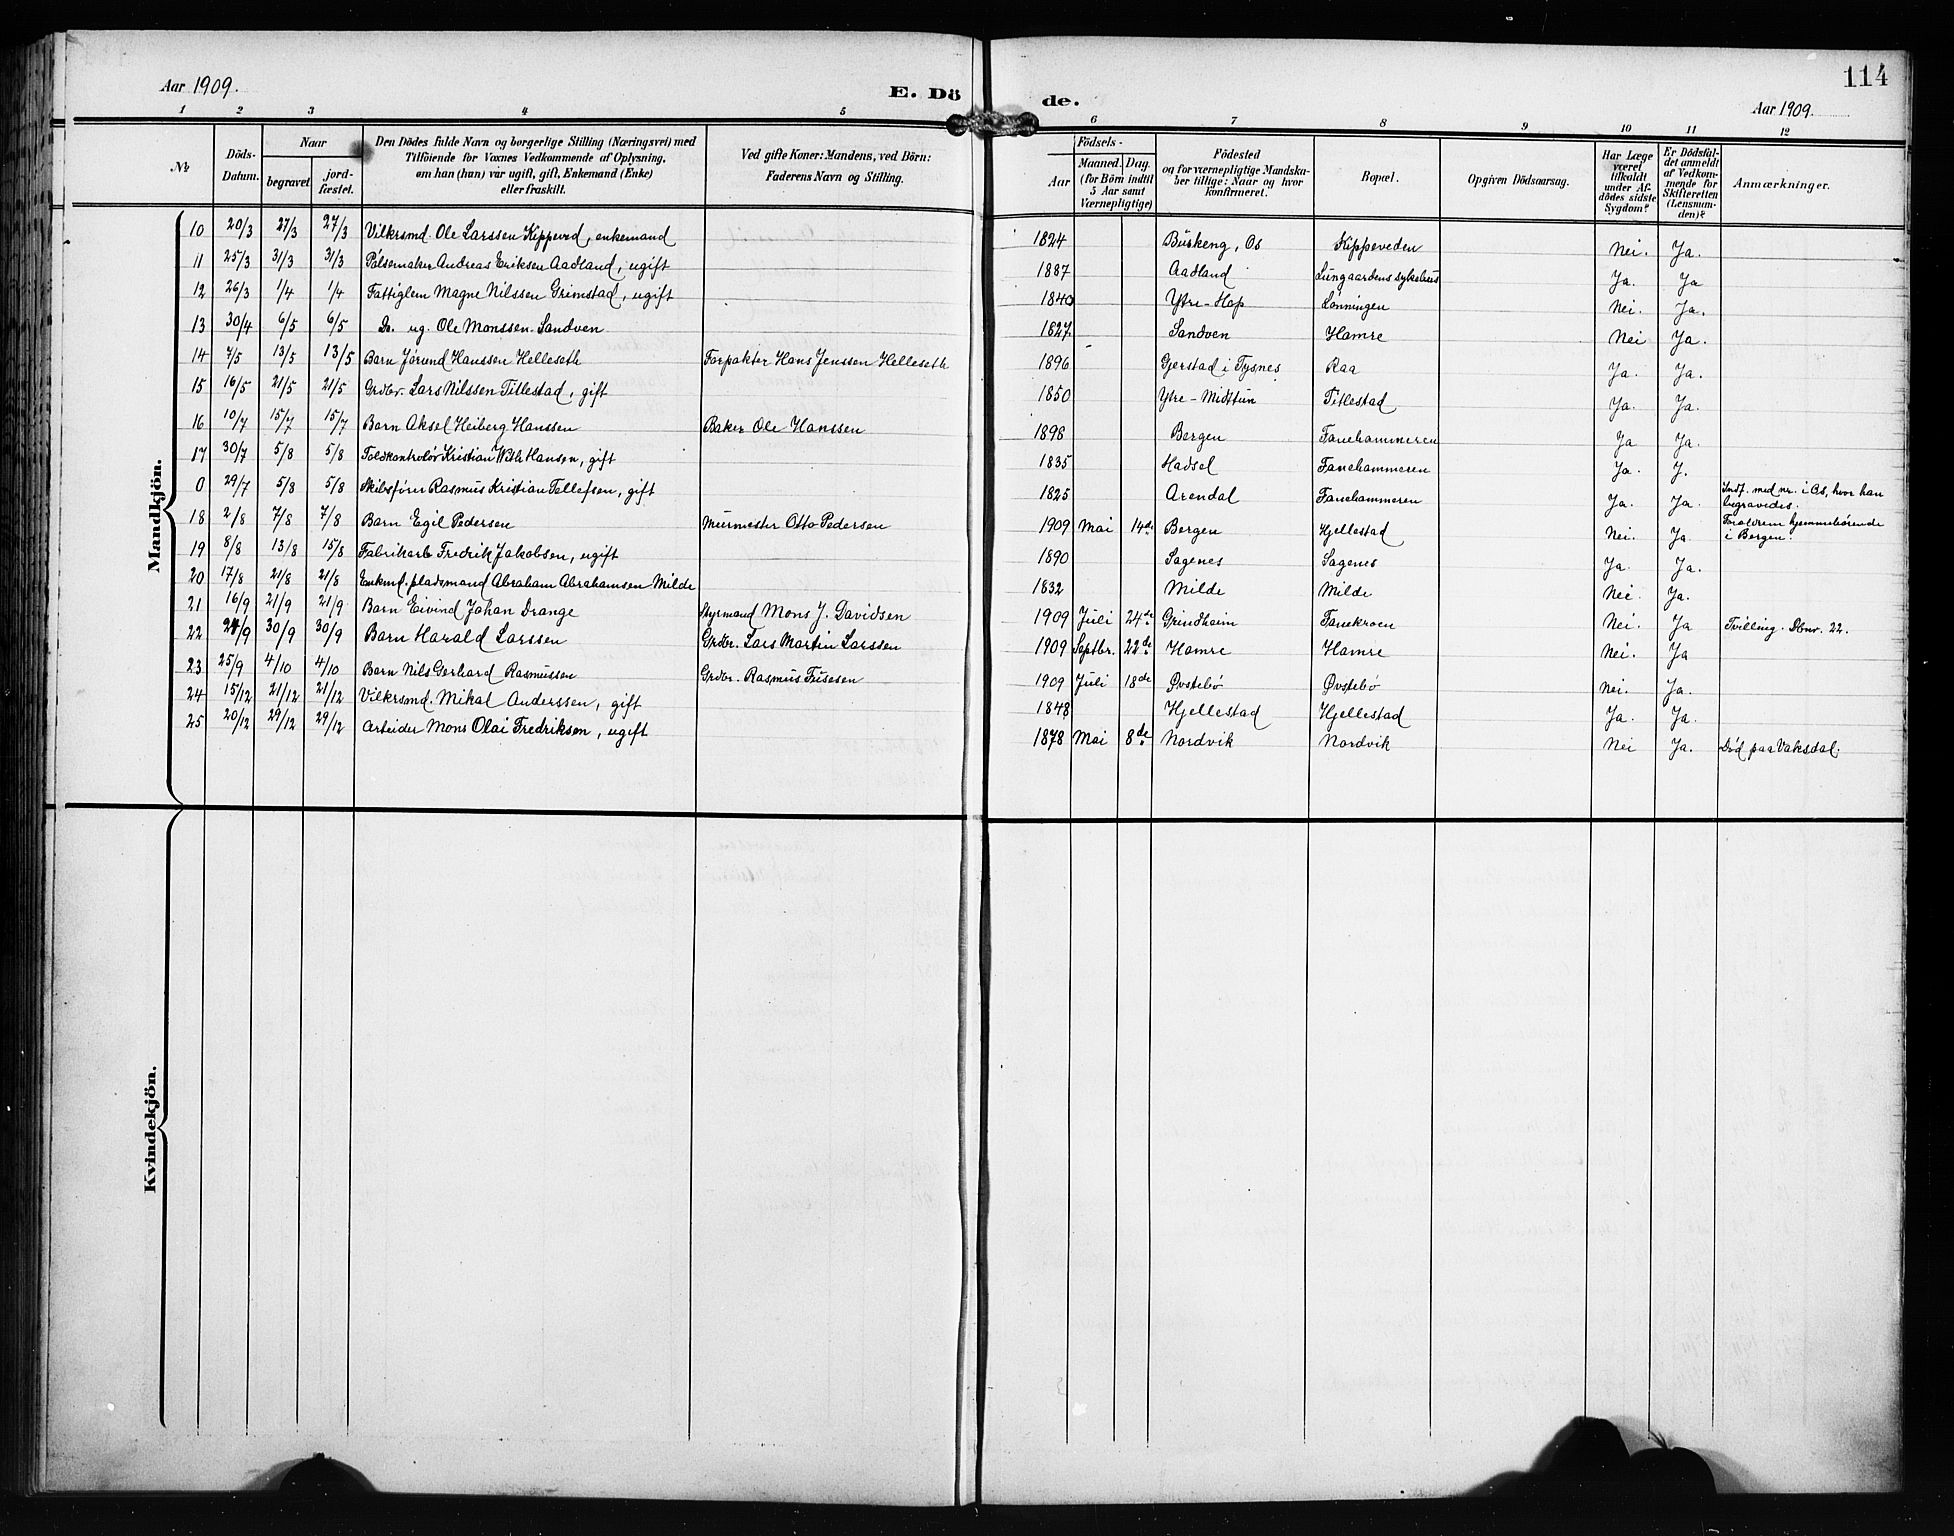 114
Aar 1909.
E. Dö de.
Aar 1909.
1 2 3 4 5 6 7 8 9 10 11 12
№
Döds-Datum.
Naar
begravet
jordfæstet.
Den Dödes fulde Navn og borgerlige Stilling (Næringsvei) med
Tilföiende for Voxnes Vedkommende af Oplysning,
om han (hun) var ugift, gift, Enkemand (Enke)
eller fraskilt.
Ved gifte Koner: Mandens, ved Börn:
Faderens Navn og Stilling.
Födsels-
Aar
Maaned. Dag.
(for Börn indtil
5 Aar samt
Værnepligtige)
Födested
og for værnepligtige Mandskaber tillige: Naar og hvor
konfirmeret.
Bopæl.
Opgiven Dödsaarsag.
Har Læge
været
tilkaldt
under Afdödes sidste
Sygdom?
Er Dödsfaldet anmeldt
af Vedkommende for
Skifteretten
(Lensmanden)?
Anmærkninger.
Mandkjön.
10 20/3 27/3 27/3 Vilkrsmd. Ole Larssen Kippeved, enkemand 1824 Buskeng, Os Kippeveden Nei. Ja.
11 25/3 31/3 31/3 Pølsemaker Andreas Eriksen Aadland, ugift 1887 Aadland Lungaardens sykehus Ja. Ja
12 26/3 1/4 1/4 Fattiglem Magne Nilssen Grimstad, ugift 1840 Ytre-Hop Lønningen Nei. Ja.
13 30/4 6/5 6/5 Do. ug. Ole Monssen Sandven 1827. Sandven Hamre Nei Ja.
14 7/5 13/5 13/5 Barn Jørund Hanssen Helleseth Forpakter Hans Jenssen Helleseth 1896 Gjerstad i Tysnes Raa Ja. Ja.
15 16/5 21/5 21/5 Grdbr. Lars Nilssen Titlestad, gift 1850 Ytre-Midttun Titlestad Ja. Ja.
16 10/7 15/7 15/7 Barn Aksel Heiberg Hanssen Baker Ole Hanssen 1898 Bergen Fanehammeren Ja Ja.
17 30/7 5/8 5/8 Toldkontrolør Kristian With Hansen, gift 1835 Hadsel Fanehammeren Ja. J.
0 29/7 5/8 5/8 Skibsfører Rasmus Kristian Tellefsen, gift 1825 Arendal Fanehammeren Ja. Ja. Indf. med nr. i Os, hvor han begravedes.
18 2/8 7/8 7/8 Barn Egil Pedersen Murmester Otto Pedersen 1909 Mai 14de Bergen Hjellestad Nei. Ja Foraldrene hjemmehørende i Bergen.
19 8/8 13/8 15/8 Fabrikarb. Fredrik Jakobsen, ugift 1890 Sagenes Sagenes Ja. Ja.
20 17/8 21/8 21/8 Enkmd. pladsmand Abraham Abrahamsen Milde 1832 Milde Milde Nei. Ja.
21 16/9 21/9 21/9 Barn Eivind Johan Drange Styrmand Mons J. Davidsen 1909 Juli 24de Grindheim Fanekroen Nei. Ja Tvilling. Dbnr. 22.
22 24/9 30/9 30/9 Barn Harald Larssen Grdbr. Lars Martin Larssen 1909 Septbr. 22de Hamre Hamre Nei. Ja
23 25/9 4/10 4/10 Barn Nils Gerhard Rasmussen Grdbr. Rasmus 1909 Juli 18de Øvstebø Øvstebø Nei. Ja.
24 15/12 21/12 21/12 Vilkrsmd. Mikal Anderssen, gift 1848 Hjellestad Hjellestad Ja. Ja.
25 20/12 29/12 29/12 Arbeider Mons Olai Fredriksen, ugift 1878 Mai 8de Nordvik Nordvik Nei Ja. Død paa Vaksdal.
Kvindekjön.